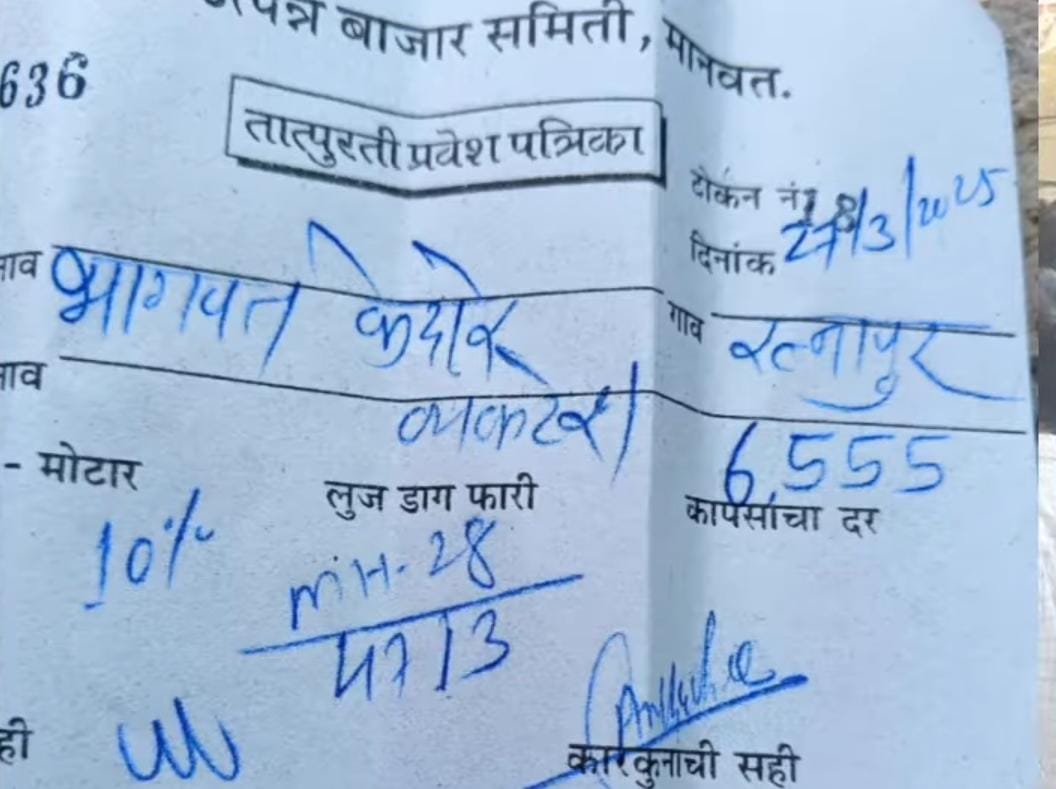 बाजार समिती, मानवत.
636
तात्पुरती प्रवेश पत्रिका
टोकन नं.
दिनांक 27/3/2025
नाव भागवत केदारे
गाव रत्नापुर
नाव व्यंकटेश
- मोटार लुज डाग फारी
6,555
कापसाचा दर
10%
MH-28
4713
ही
कारकुनाची सही